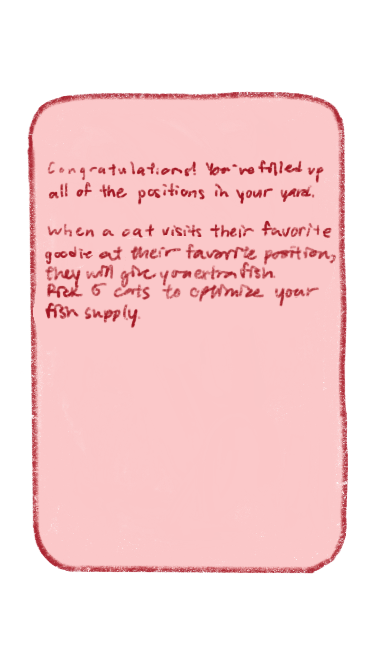 Congratulations! You've filled up
all of the positions in your yard.
When a cat visits their favorite
goodie at their favorite position,
they will give you extra fish.
Pick 5 cats to optimize your
fish supply.